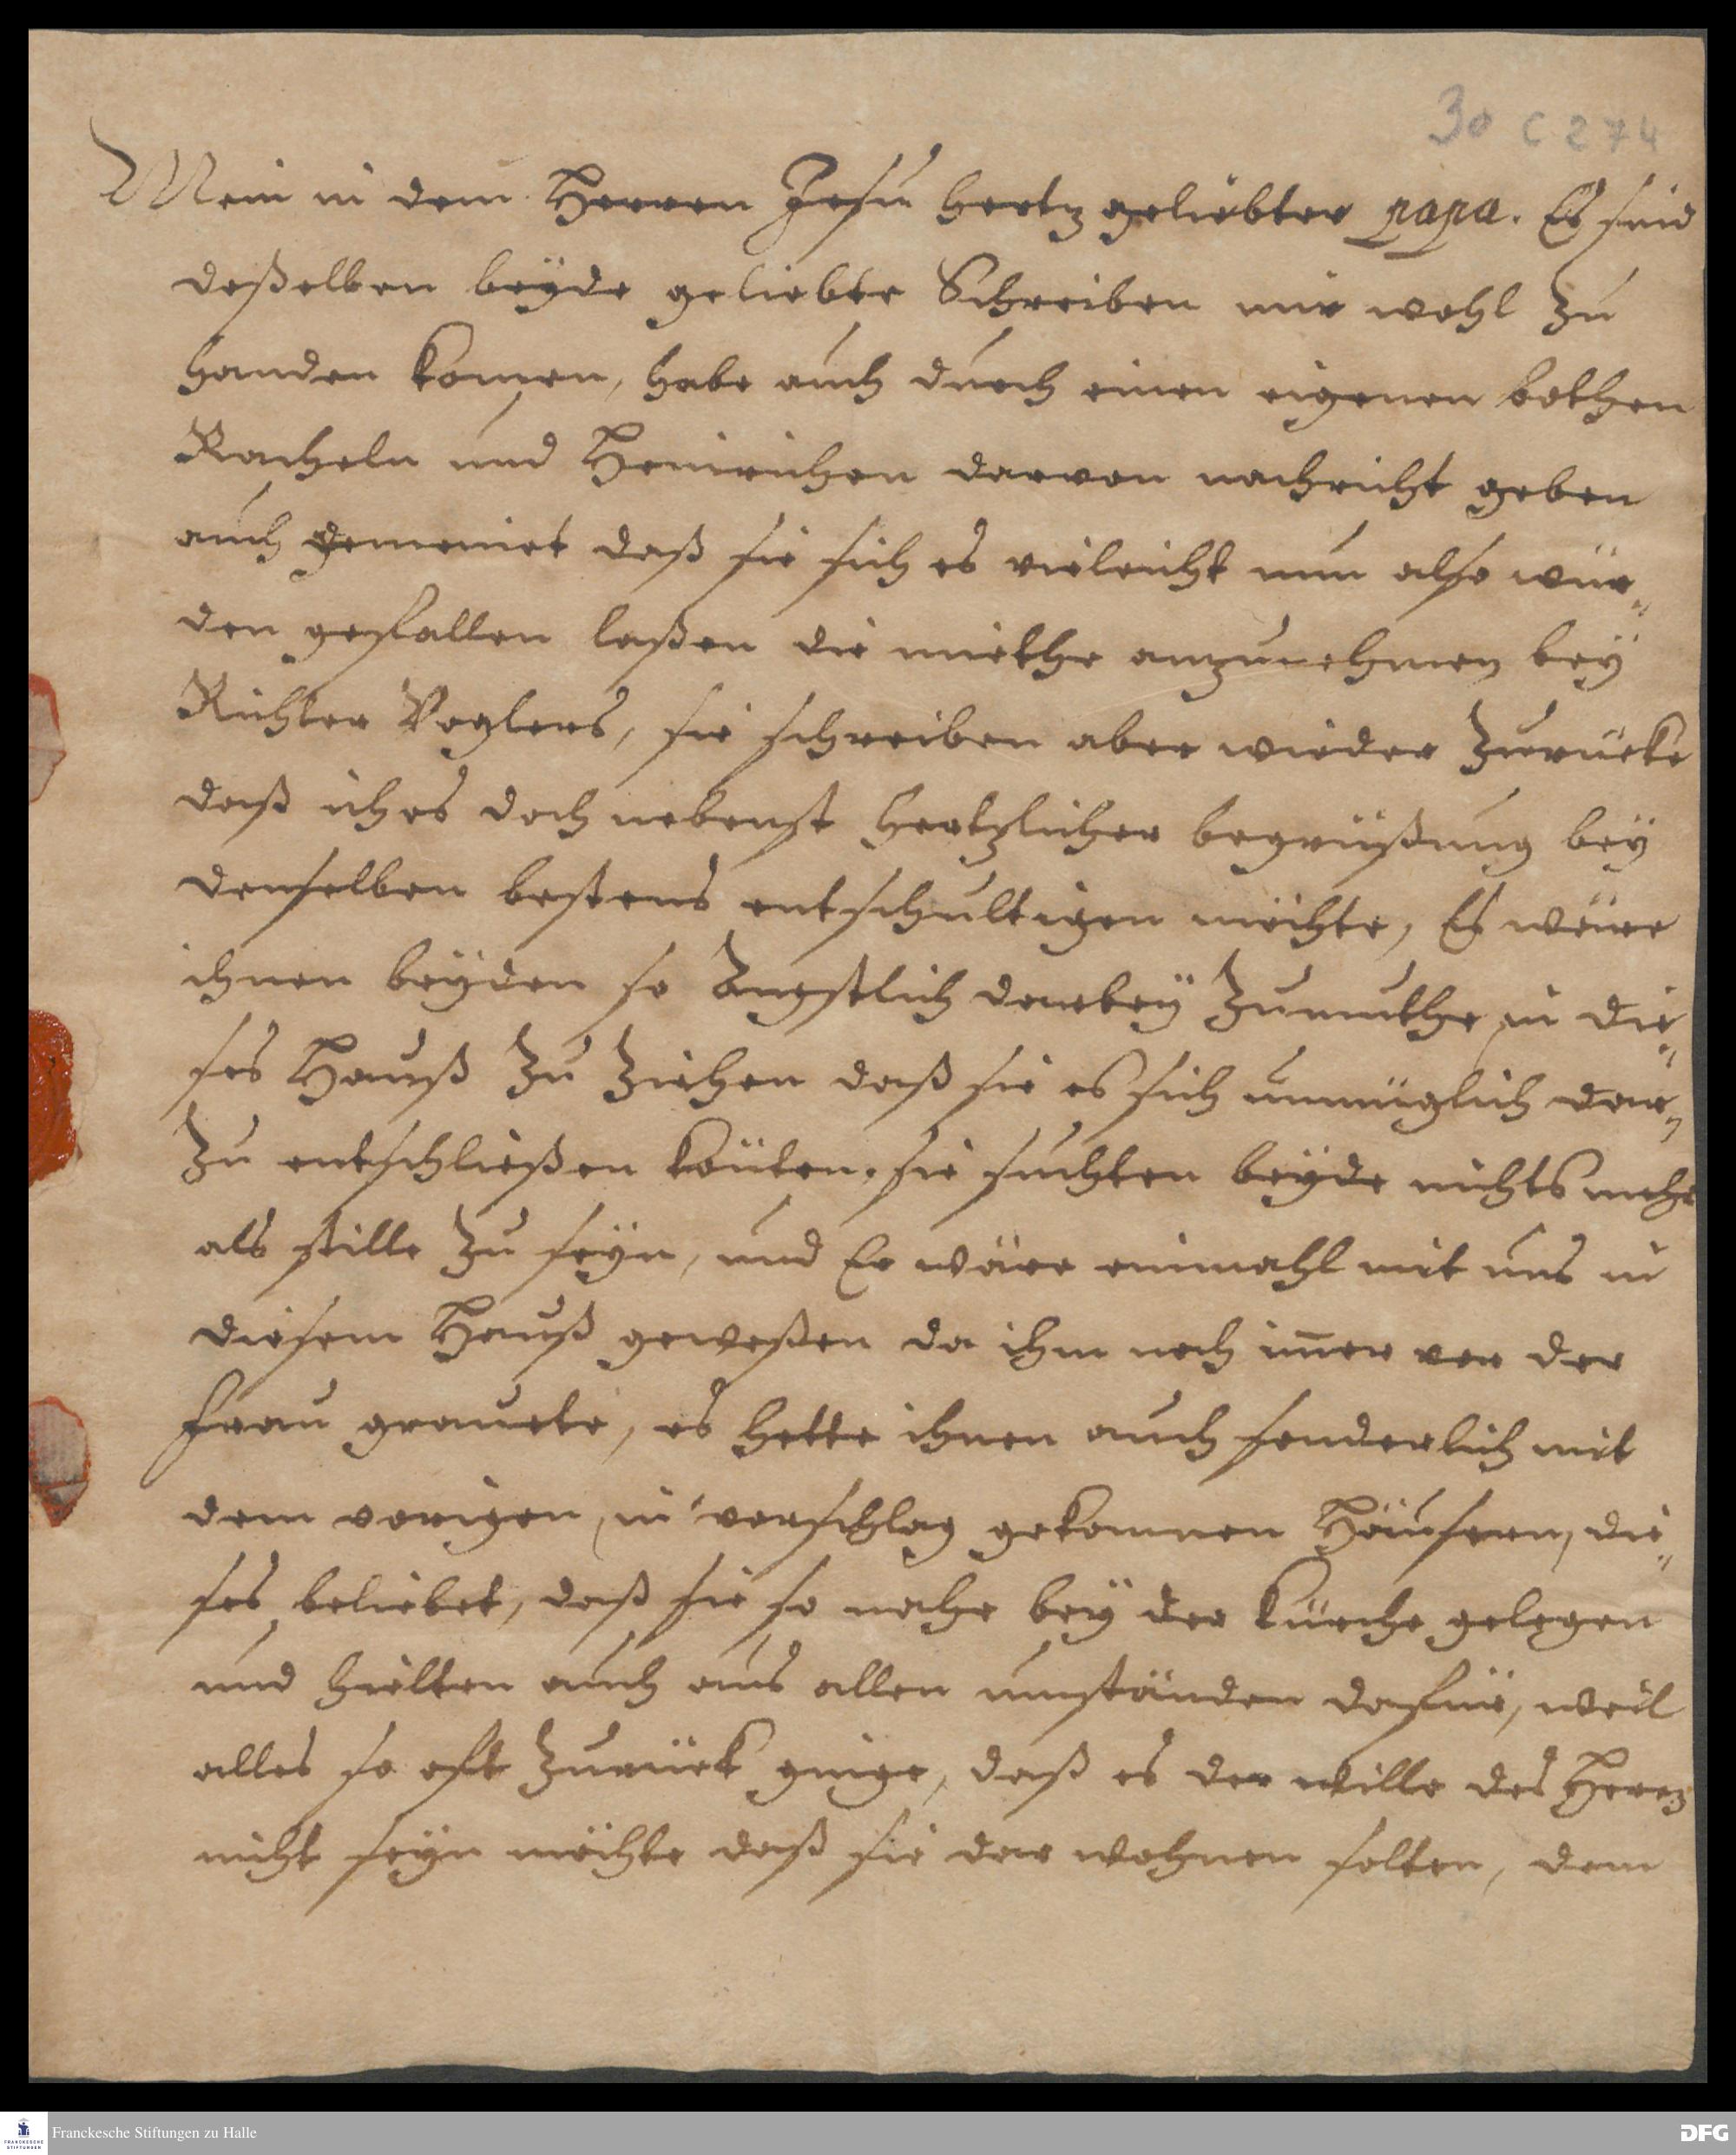 30 C 274
Mein in dem Herren Jesu hertz geliebter papa. Es sind
deßelben beÿde geliebte Schreiben mir wohl zu
handen komen, habe auch durch einen eigenen bothen
Racheln und Heinrichen darvon nachricht geben
auch gemeinet daß sie sich es vieleicht nun also wür„
den gefallen laßen die miethe anzunehmen beÿ
Richter Voglers, sie schreiben aber wieder zurücke
daß ich es doch nebenst hertzlicher begrüßung beÿ
denselben bestens entschultigen möchte, Es wäre
ihnen beÿden so Ängstlich darbeÿ zumuthe in die„
ses Hauß zu ziehen daß sie es sich unmüglich dar„
zu entschließen köñten. sie suchten beÿde nichts mehr
als stille zu seÿn, und Er wäre einmahl mit uns in
diesem Hauß geweßen da ihm noch im̄er vor der
frau grauete, es hette ihnen auch sonderlich mit
dem vorigen in vorschlag gekommen Häusern, die„
ses beliebet, daß sie so nahe beÿ der Kürche gelegen
und hielten auch aus allen umständen dafür, weil
alles so oft zurück ginge, daß es der wille des Herrn
nicht seÿn möchte daß sie dar wohnen solten, dem
Franckesche Stiftungen zu Halle
FRANCKESCHE
STIFTUNGEN
DFG